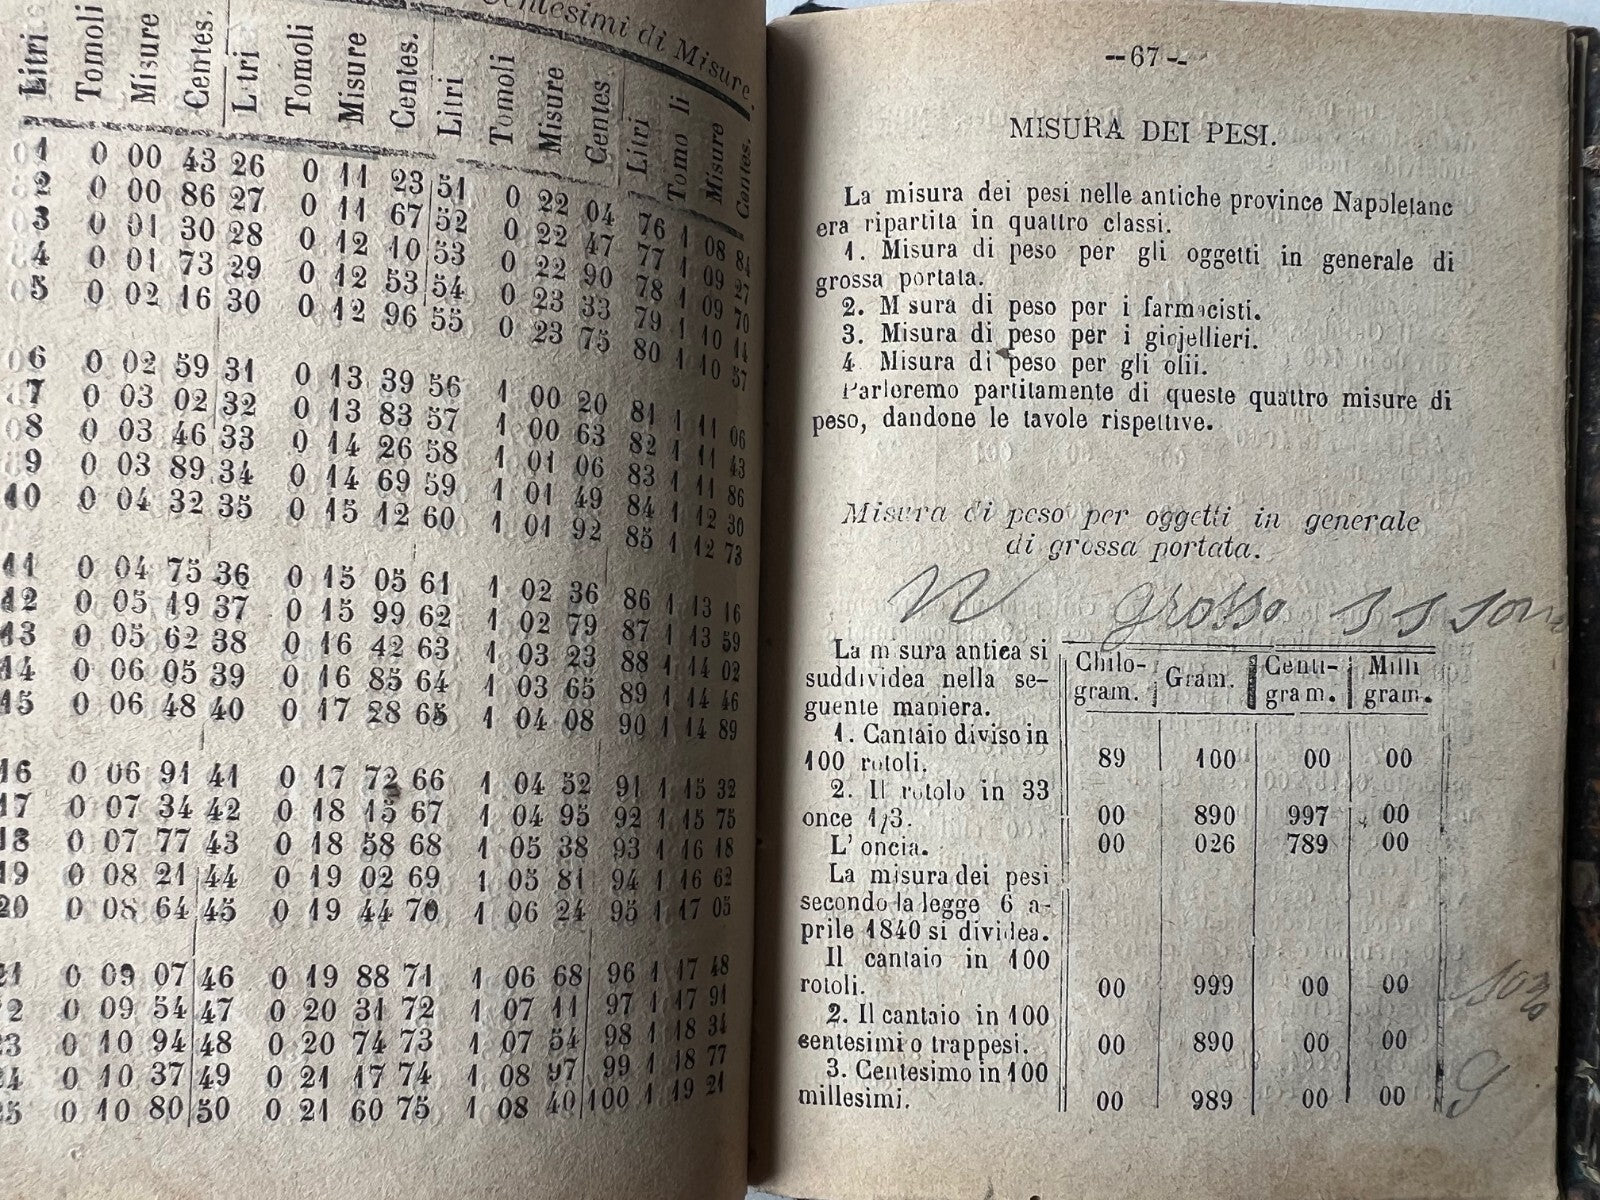 Centesimi di Misure.
Litri. Tomoli Misure Centes. Litri Tomoli Misure Centes. Litri Tomoli Misure Centes Litri Tomo li Misure Centes.
1 0 00 43 26 0 11 23 51 0 22 04 76 1 08 84
2 0 00 86 27 0 11 67 52 0 22 47 77 1 09 27
3 0 01 30 28 0 12 10 53 0 22 90 78 1 09 70
4 0 01 73 29 0 12 53 54 0 23 33 79 1 10 14
5 0 02 16 30 0 12 96 55 0 23 75 80 1 10 57
06 0 02 59 31 0 13 39 56 1 00 20 81 1 11 06
7 0 03 02 32 0 13 83 57 1 00 63 82 1 11 43
08 0 03 46 33 0 14 26 58 1 01 06 83 1 11 86
09 0 03 89 34 0 14 69 59 1 01 49 84 1 12 30
10 0 04 32 35 0 15 12 60 1 01 92 85 1 12 73
11 0 04 75 36 0 15 05 61 1 02 36 86 1 13 16
12 0 05 19 37 0 15 99 62 1 02 79 87 1 13 59
13 0 05 62 38 0 16 42 63 1 03 23 88 1 14 02
14 0 06 05 39 0 16 85 64 1 03 65 89 1 14 46
15 0 06 48 40 0 17 28 65 1 04 08 90 1 14 89
16 0 06 91 41 0 17 72 66 1 04 52 91 1 15 32
17 0 07 34 42 0 18 15 67 1 04 95 92 1 15 75
18 0 07 77 43 0 18 58 68 1 05 38 93 1 16 18
19 0 08 21 44 0 19 02 69 1 05 81 94 1 16 62
20 0 08 64 45 0 19 44 70 1 06 24 95 1 17 05
21 0 09 07 46 0 19 88 71 1 06 68 96 1 17 48
2 0 09 54 47 0 20 31 72 1 07 11 97 1 17 91
23 0 10 94 48 0 20 74 73 1 07 54 98 1 18 34
24 0 10 37 49 0 21 17 74 1 08 97 99 1 18 77
25 0 10 80 50 0 21 60 75 1 08 40 100 1 19 21
--67--
MISURA DEI PESI.
La misura dei pesi nelle antiche province Napoletane
era ripartita in quattro classi.
1. Misura di peso per gli oggetti in generale di
grossa portata.
2. M sura di peso per i farmacisti.
3. Misura di peso per i giojellieri.
4 Misura di peso per gli olii.
Parleremo partitamente di queste quattro misure di
peso, dandone le tavole rispettive.
Misura di peso per oggetti in generale
di grossa portata.
grosso
La m sura antica si
suddividea nella se-
guente maniera.
1. Cantaio diviso in
100 rotoli.
2. Il rotolo in 33
once 1/3.
L' oncia.
La misura dei pesi
secondo la legge 6 a-
prile 1840 si dividea.
Il cantaio in 100
rotoli.
2. Il cantaio in 100
centesimi o trappesi.
3. Centesimo in 100
millesimi.
Chilo-gram. Gram. Centi-gram. Milli gram.
89 100 00 00
00 890 997 00
00 026 789 00
00 999 00 00
00 890 00 00
00 989 00 00